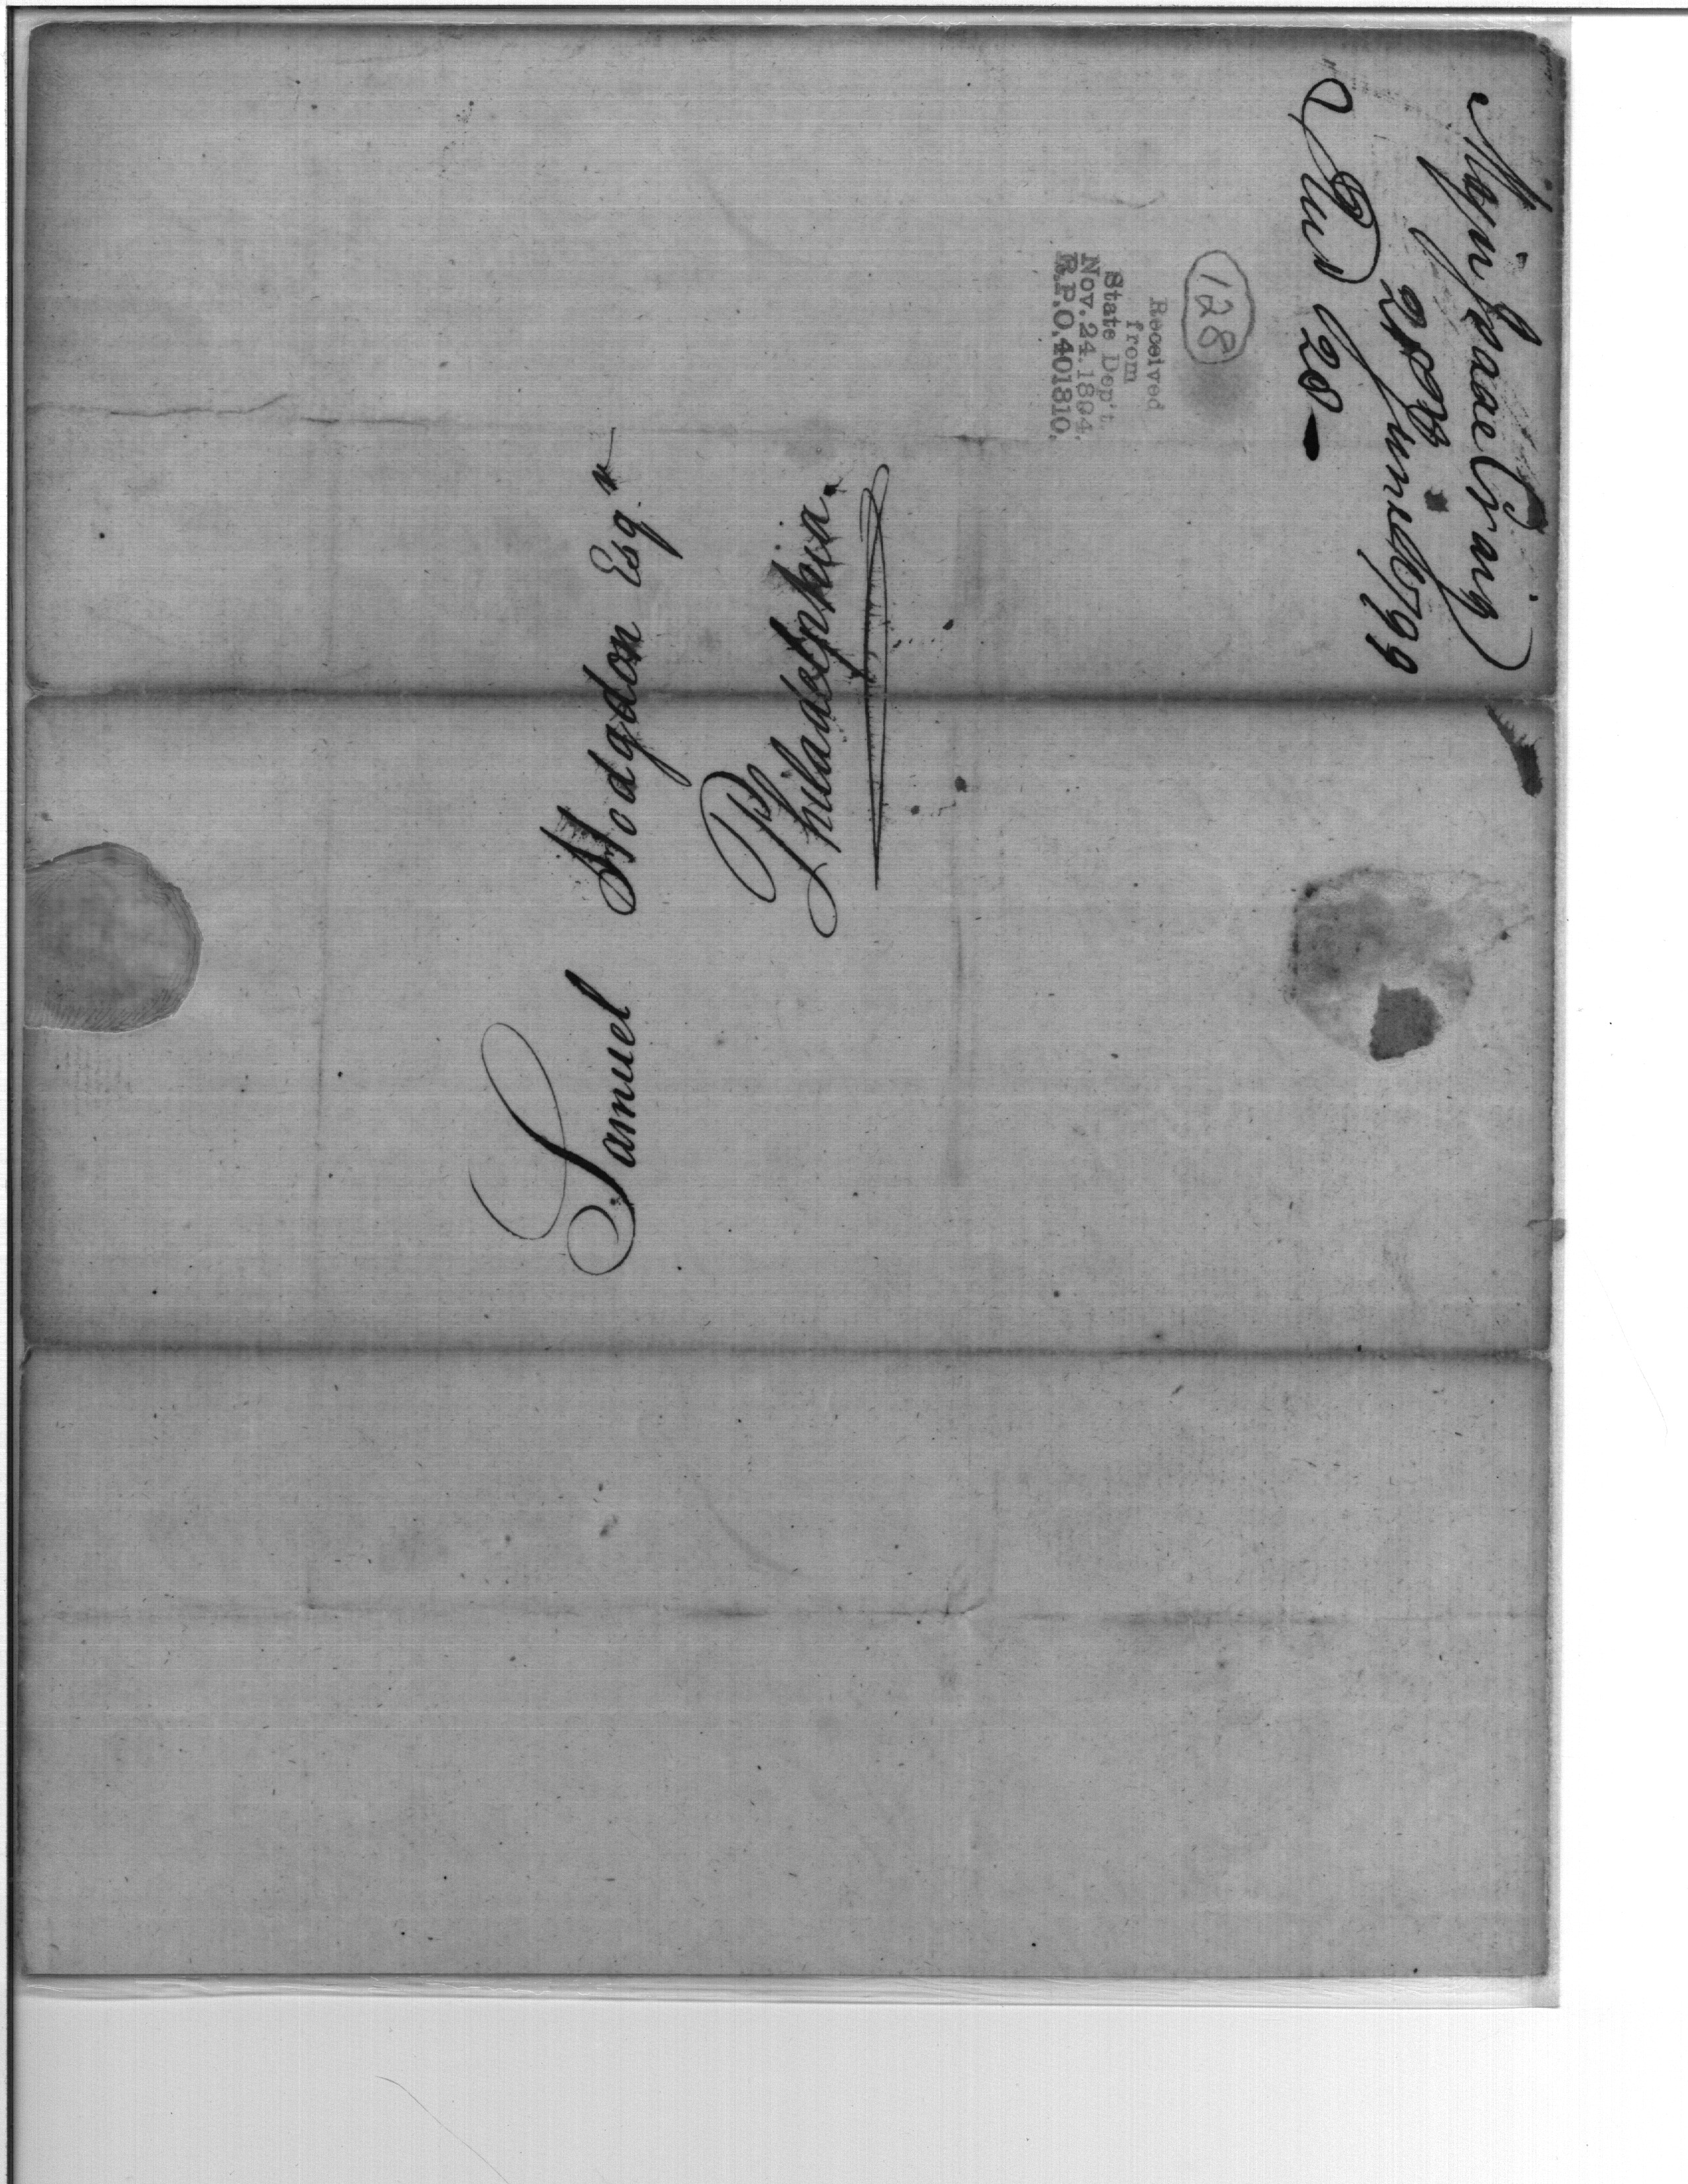 Samuel Hodgdon Esqr
Philadelphia.
Major Isaac Craig
June 1799
Recd 28
128
Received
from
State Dep't.
Nov. 24. 1894.
R.P.O. 401810.